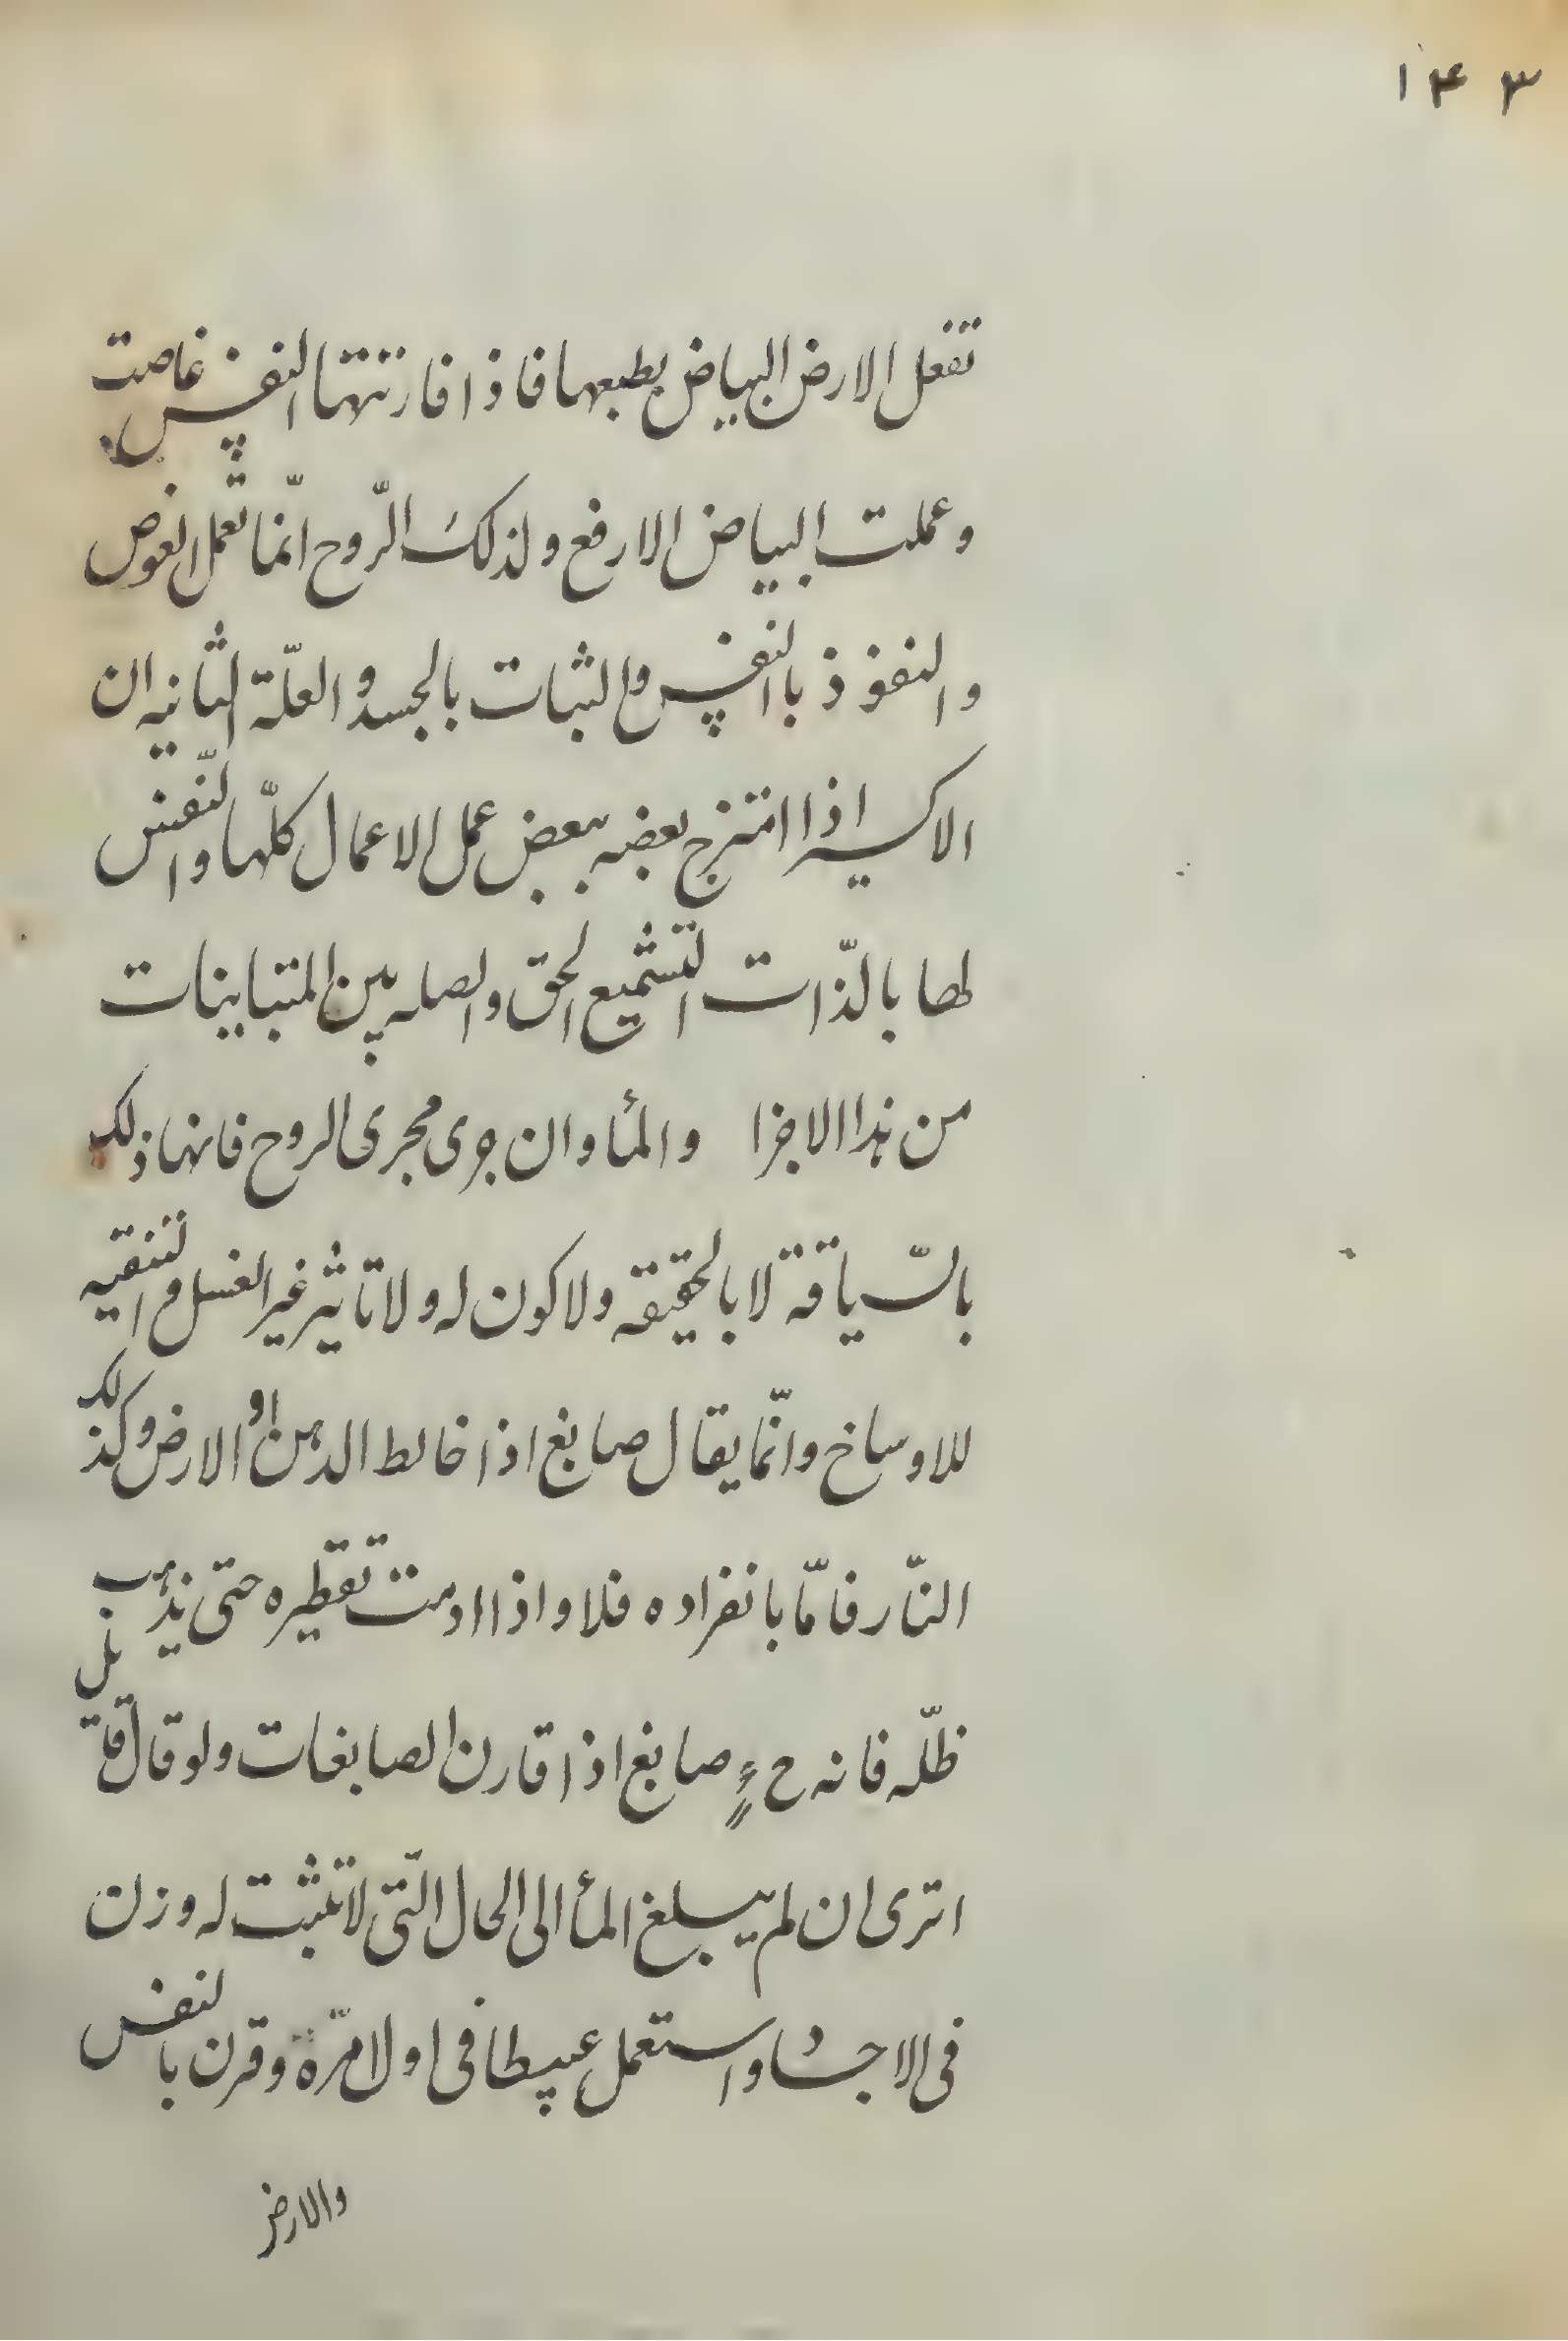 ١۴٣
تفعل الارض البياض بطبعها فاذا فارنتها النفس غاصت
وعملت البياض الارفع ولذلك الرّوح انّما تعمل الغوص
والنفوذ بالنفس والثبات بالجسد والعلّة الثانيه ان
الاكسير اذا امتزج بعضه ببعض عمل الاعمال كلّها والنّفس
لها بالذّات التشميع الحق والصله بين المتباينات
من هذا الاجزا والمأ وان جرى مجرى الروح فانها ذلك
بالسّياقة لا بالحقيقه ولا كون له ولا تاثير غير الغسل والتنقيه
للاوساخ وانّما يقال صابغ اذا خالط الدهن او الارض وكذلك
النّار فامّا بانفراده فلا واذا ادمت تقطيره حتى يذهب
ظلّه فانه ح صابغ اذا قارن الصابغات ولو قال قائل
اترى ان لم يبلغ المأ الى الحال الّتى لا تثبت له وزن
فى الاجساد واستعمل عبيطا فى اول مرّة وقرن بالنفس
والارض